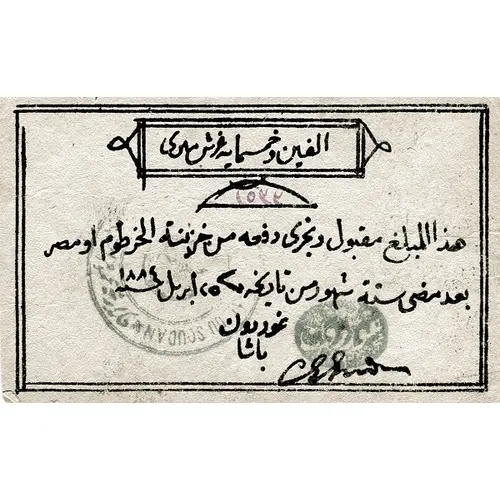 الفين وخمسمايه غرش مصرى
هذا المبلغ مقبول ويجرى دفعه من خزينة الخرطوم او مصر
بعد مضى ستة شهور من تاريخه ٢٥ ابريل سنة ١٨٨٤
غوردون
باشا
DU SOUDAN